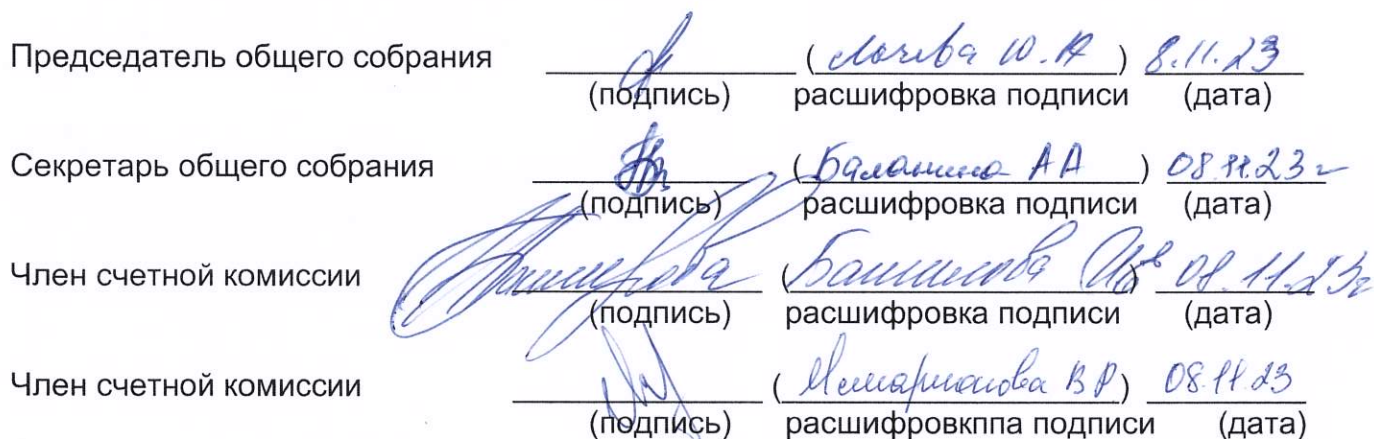 Председатель общего собрания ( Ю.А ) 8.11.23
(подпись) расшифровка подписи (дата)
Секретарь общего собрания ( Баланина АА ) 08.11.23г
(подпись) расшифровка подписи (дата)
Член счетной комиссии ( 08.11.23г
(подпись) расшифровка подписи (дата)
Член счетной комиссии ( В Р ) 08.11.23
(подпись) расшифровкппа подписи (дата)